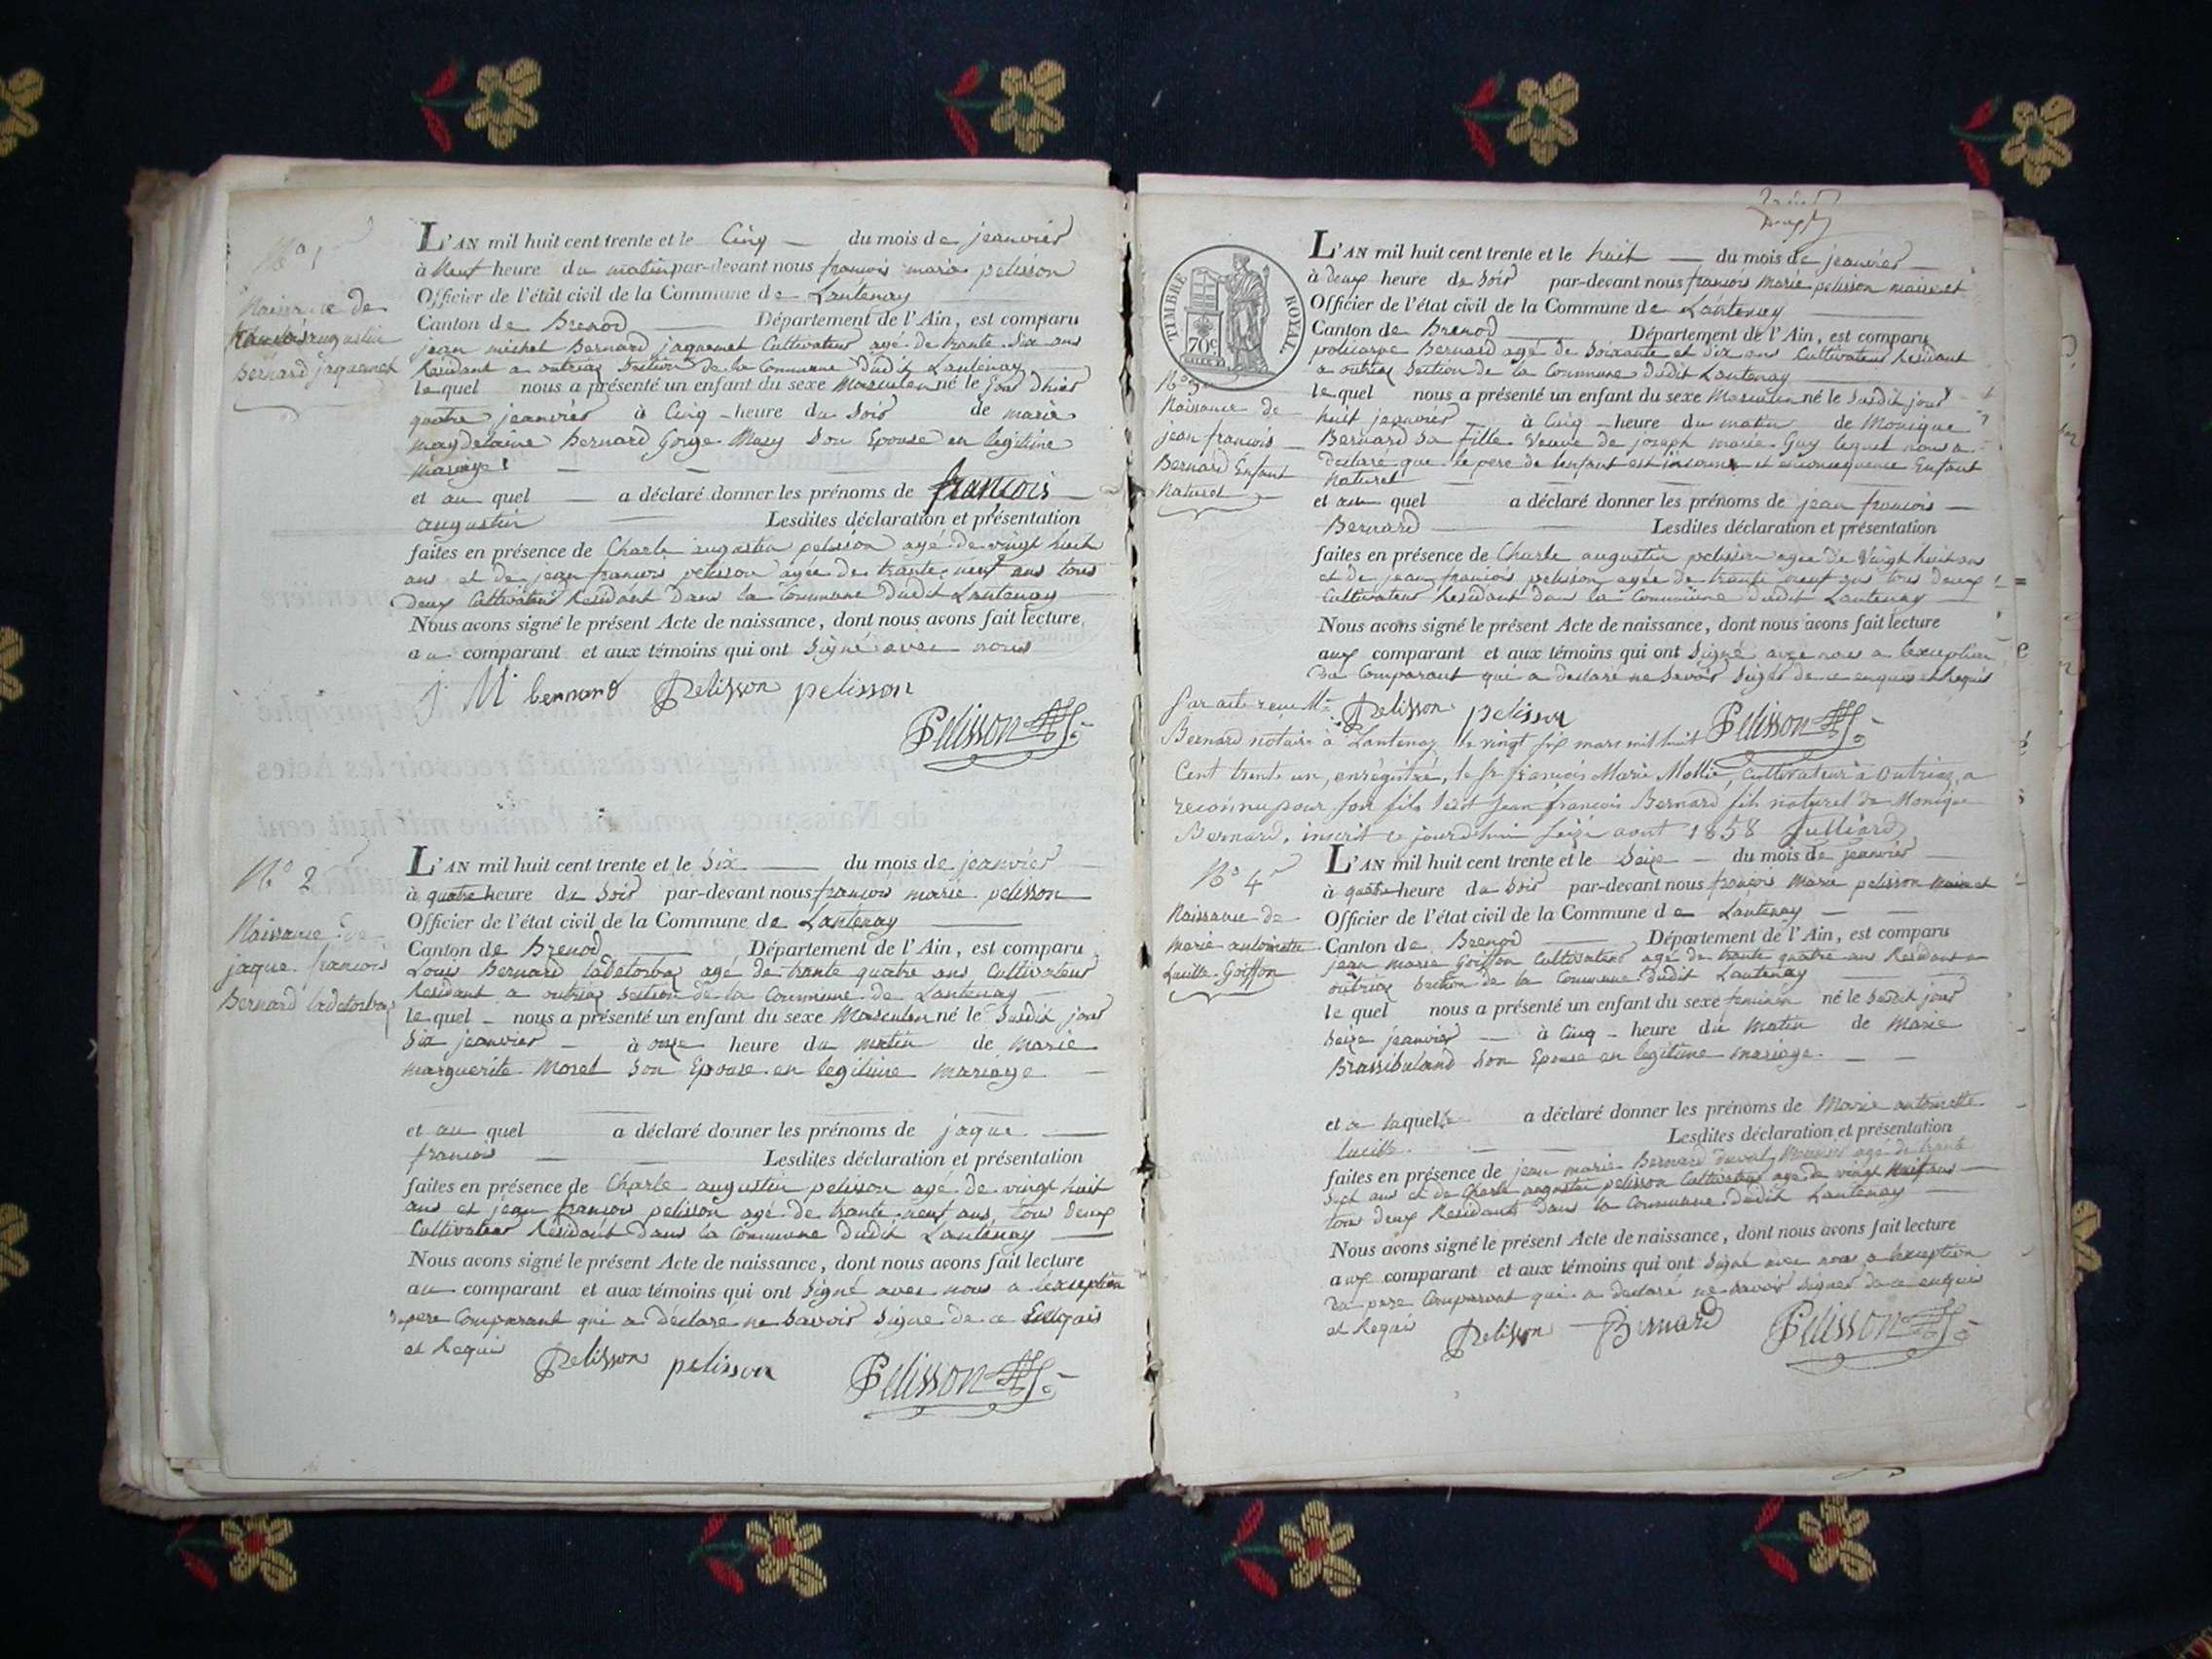 N° 1
Naissance de
françois augustin
Bernard jaquemet
L'AN mil huit cent trente et le Cinq du mois de jeanvier
à Neuf heure du matin par-devant nous françois marie pelisson
Officier de l'état civil de la Commune de Lantenay
Canton de Brenod Département de l'Ain, est comparu
jean michel Bernard jaquemet Cultivateur agé de trante six ans
Residant a outriaz Section de la Commune dudit Lantenay
le quel nous a présenté un enfant du sexe Masculin né le jour dhier
quatre jeanvier à Cinq heure du Soir de marie
magdelaine Bernard Gorge Masy Son Epouse en legitime
mariage
et au quel a déclaré donner les prénoms de françois
augustin Lesdites déclaration et présentation
faites en présence de Charle augustin pelisson agé de vingt huit
ans et de jean françois pelisson agée de trante neuf ans tous
deux Cultivateur Residant dans la Commune dudit Lantenay
Nous avons signé le présent Acte de naissance, dont nous avons fait lecture
au comparant et aux témoins qui ont Signé avec nous
J M bernard Pelisson pelisson
Pelisson
N° 2
Naissance de
jaque françois
Bernard ladetorbaz
L'AN mil huit cent trente et le Six du mois de jeanvier
à quatre heure du Soir par-devant nous françois marie pelisson
Officier de l'état civil de la Commune de Lantenay
Canton de Brenod Département de l'Ain, est comparu
Louis Bernard ladetorbaz agé de trante quatre ans Cultivateur
Residant a outriaz Section de la Commune de Lantenay
le quel nous a présenté un enfant du sexe Masculin né le Susdit jour
Six jeanvier à onze heure du matin de marie
marguerite Morel Son Epouse en legitime mariage
et au quel a déclaré donner les prénoms de jaque
françois Lesdites déclaration et présentation
faites en présence de Charle augustin pelisson agé de vingt huit
ans et jean françois pelisson agé de trante neuf ans tous deux
Cultivateur Residant dans la Commune dudit Lantenay
Nous avons signé le présent Acte de naissance, dont nous avons fait lecture
au comparant et aux témoins qui ont Signé avec nous a lexception
du pere Comparant qui a déclaré ne Savoir Signe de ce Enquis
et Requis
Pelisson pelisson Pelisson
TIMBRE ROYAL
70c
N° 3
Naissance de
jean françois
Bernard Enfant
Naturel
L'AN mil huit cent trente et le huit du mois de jeanvier
à deux heure du Soir par-devant nous françois Marie pelisson maire et
Officier de l'état civil de la Commune de Lantenay
Canton de Brenod Département de l'Ain, est comparu
policarpe Bernard agé de Soixante et dix ans Cultivateur Residant
a outriaz Section de la Commune dudit Lantenay
le quel nous a présenté un enfant du sexe Masculin né le Susdit jour
huit jeanvier à Cinq heure du matin de Monique
Bernard Sa fille Veuve de joseph marie Guy lequel nous a
declaré que le pere de lenfant est inconnu et en consequence Enfant
Naturel
et au quel a déclaré donner les prénoms de jean françois
Bernard Lesdites déclaration et présentation
faites en présence de Charle augustin pelisson agée de Vingt huit ans
et de jean françois pelisson agée de trante neuf ans tous deux
Cultivateur Residant dans la Commune dudit Lantenay
Nous avons signé le présent Acte de naissance, dont nous avons fait lecture
aux comparant et aux témoins qui ont Signé avec nous a lexception
du Comparant qui a declaré ne Savoir Signer de ce enquis et Requis
Pelisson pelisson Pelisson
Par acte reçu Me
Bernard notaire à Lantenay le vingt six mars mil huit
Cent trente un, enrégistré, le sr françois Marie Mollie, cultivateur à Outriaz, a
reconnu pour son fils Jean françois Bernard fils naturel de Monique
Bernard, inscrit ce jourd'hui seize aout 1858 Julliard
N° 4
Naissance de
Marie antoinette
Lucille Goiffon
L'AN mil huit cent trente et le Seize du mois de jeanvier
à quatre heure du Soir par-devant nous françois Marie pelisson maire et
Officier de l'état civil de la Commune de Lantenay
Canton de Brenod Département de l'Ain, est comparu
jean marie Goiffon Cultivateur agé de trante quatre ans Residant a
outriaz Section de la Commune dudit Lantenay
le quel nous a présenté un enfant du sexe feminin né le Susdit jour
Seize jeanvier à Cinq heure du Matin de Marie
Brassibuland Son Epouse en legitime mariage
et a laquelle a déclaré donner les prénoms de Marie antoinette
lucille Lesdites déclaration et présentation
faites en présence de jean marie Bernard agé de trante
Sept ans et de Charle augustin pelisson Cultivateur agé de vingt huit ans
tous deux Residant dans la Commune dudit Lantenay
Nous avons signé le présent Acte de naissance, dont nous avons fait lecture
aux comparant et aux témoins qui ont Signé avec nous a lexception
du pere Comparant qui a declaré ne Savoir Signer de ce enquis
et Requis
Pelisson Bernard Pelisson